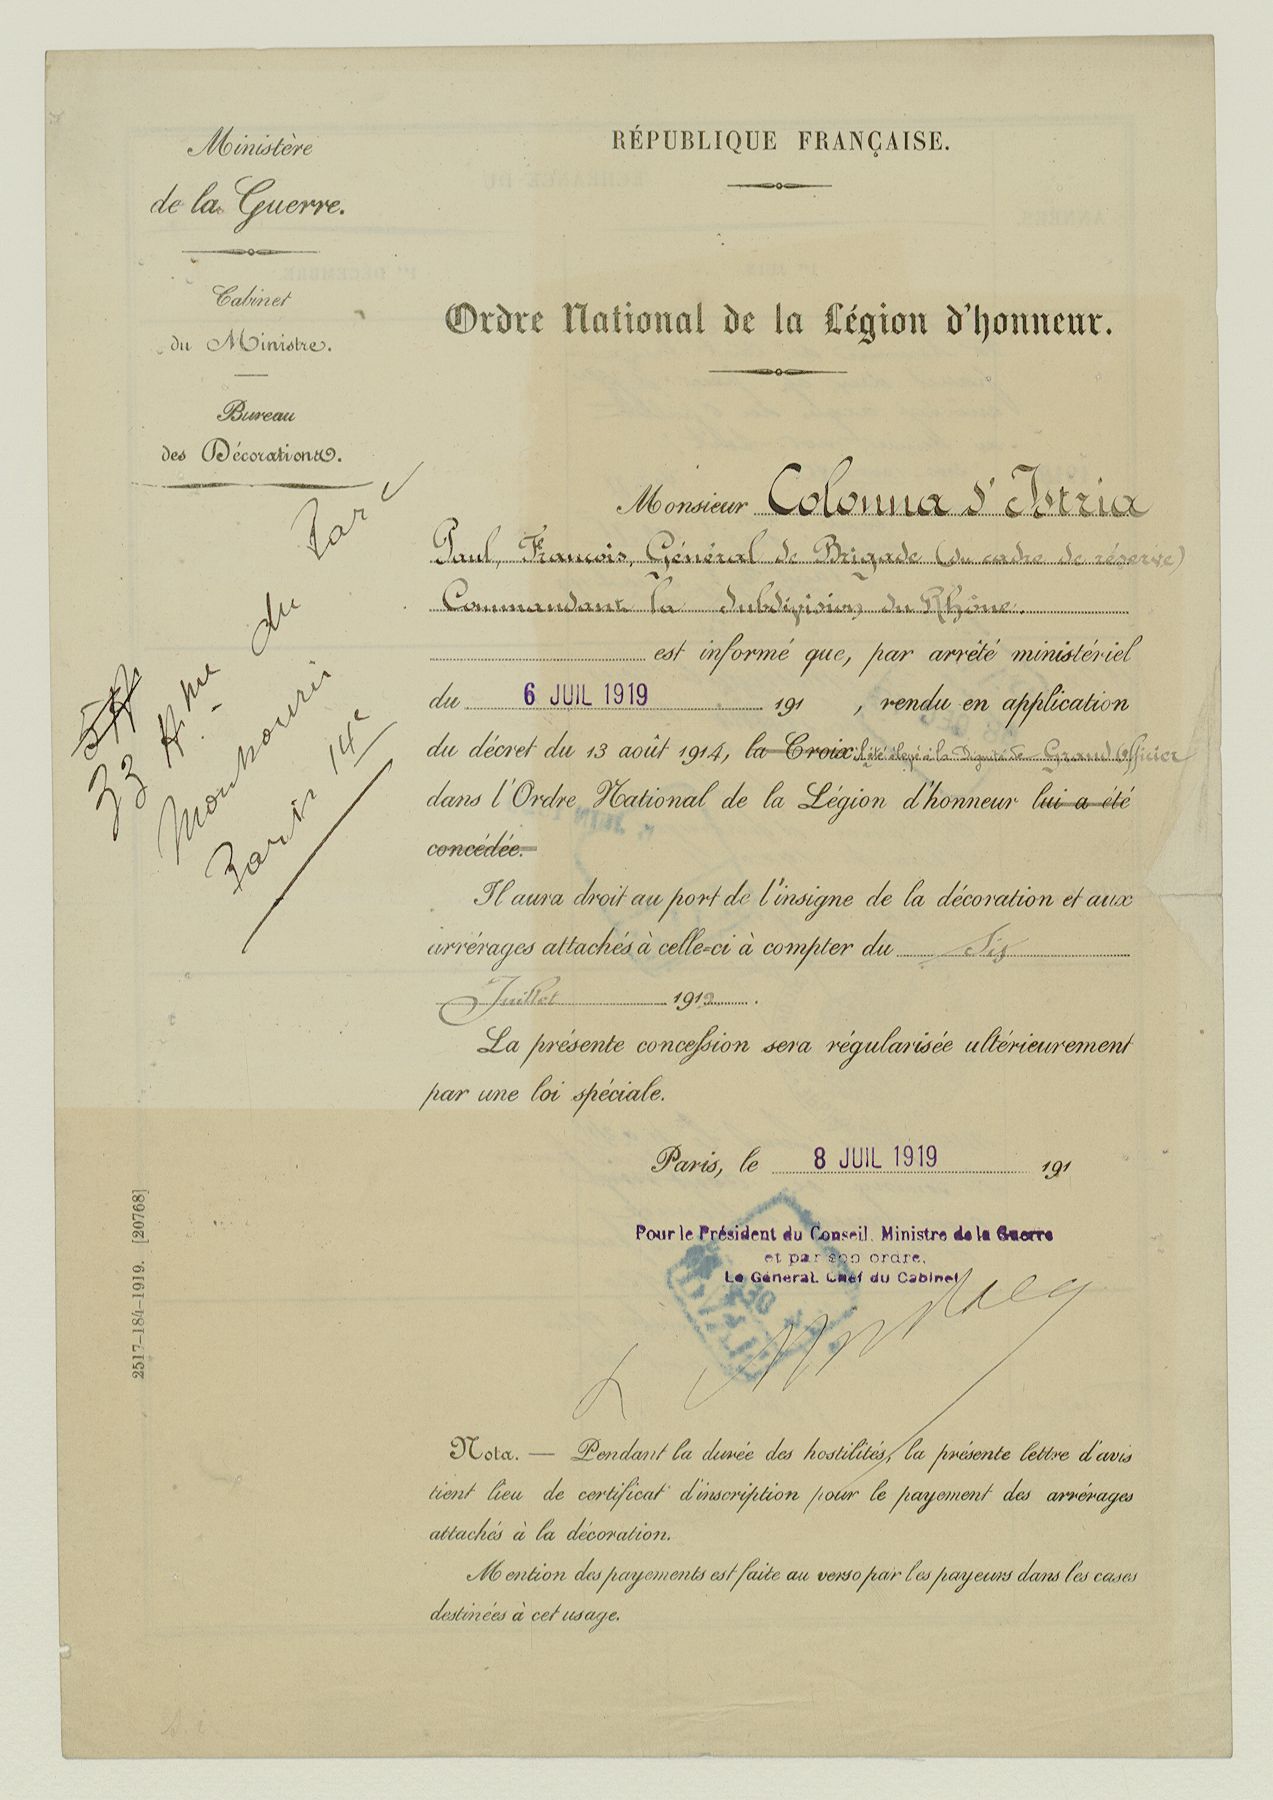 Ministère
de la Guerre.
Cabinet
du Ministre.
Bureau
des Décorations.
RÉPUBLIQUE FRANÇAISE.
Ordre National de la Légion d'honneur.
Monsieur Colonna d'Istria
Paul, François, Général de Brigade (du cadre de réserve)
Commandant la subdivision du Rhône.
est informé que, par arrêté ministériel
du 6 JUIL 1919 191 , rendu en application
du décret du 13 août 1914, la Croix il été élevé à la dignité de Grand Officier
dans l'Ordre National de la Légion d'honneur lui a été
concédée.
Il aura droit au port de l'insigne de la décoration et aux
arrérages attachés à celle-ci à compter du Six
Juillet 1919 .
La présente concession sera régularisée ultérieurement
par une loi spéciale.
Paris, le 8 JUIL 1919 191
Pour le Président du Conseil. Ministre de la Guerre
et par son ordre,
Le Général. Chef du Cabinet
Nota. — Pendant la durée des hostilités, la présente lettre d'avis
tient lieu de certificat d'inscription pour le payement des arrérages
attachés à la décoration.
Mention des payements est faite au verso par les payeurs dans les cases
destinées à cet usage.
33 du Parc
Montsouris
Paris 14e
2517-184-1919. [20768]